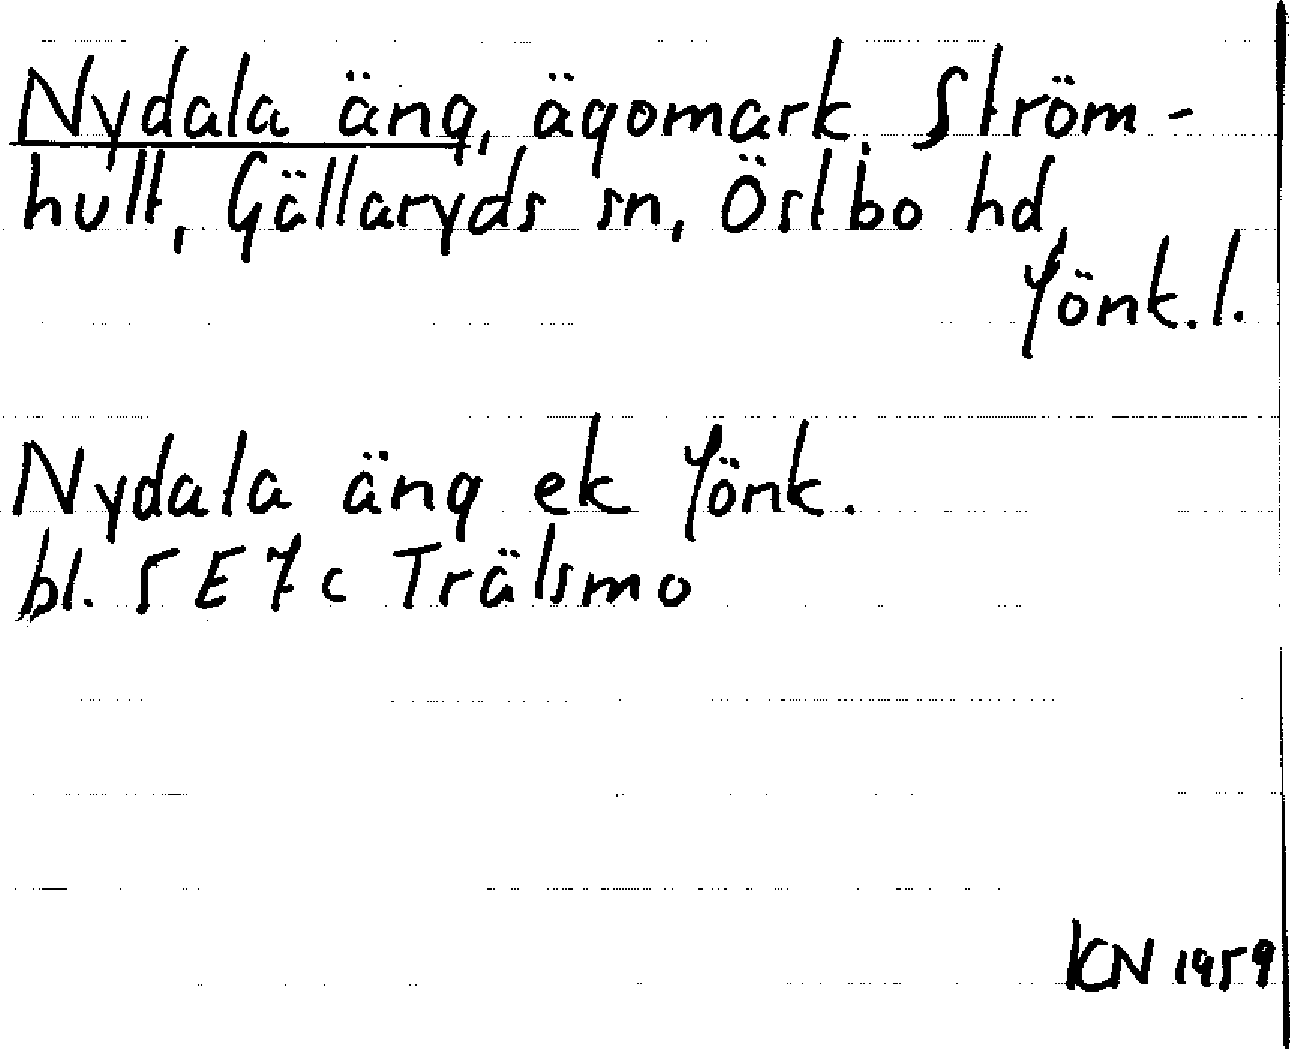 Nydala äng, ägomark, Ström-
hult, Gällaryds sn, Östbo hd,
Jönk. l.
Nydala äng ek Jönk.
bl. 5 E 7 c Trälsmo
KN 1959